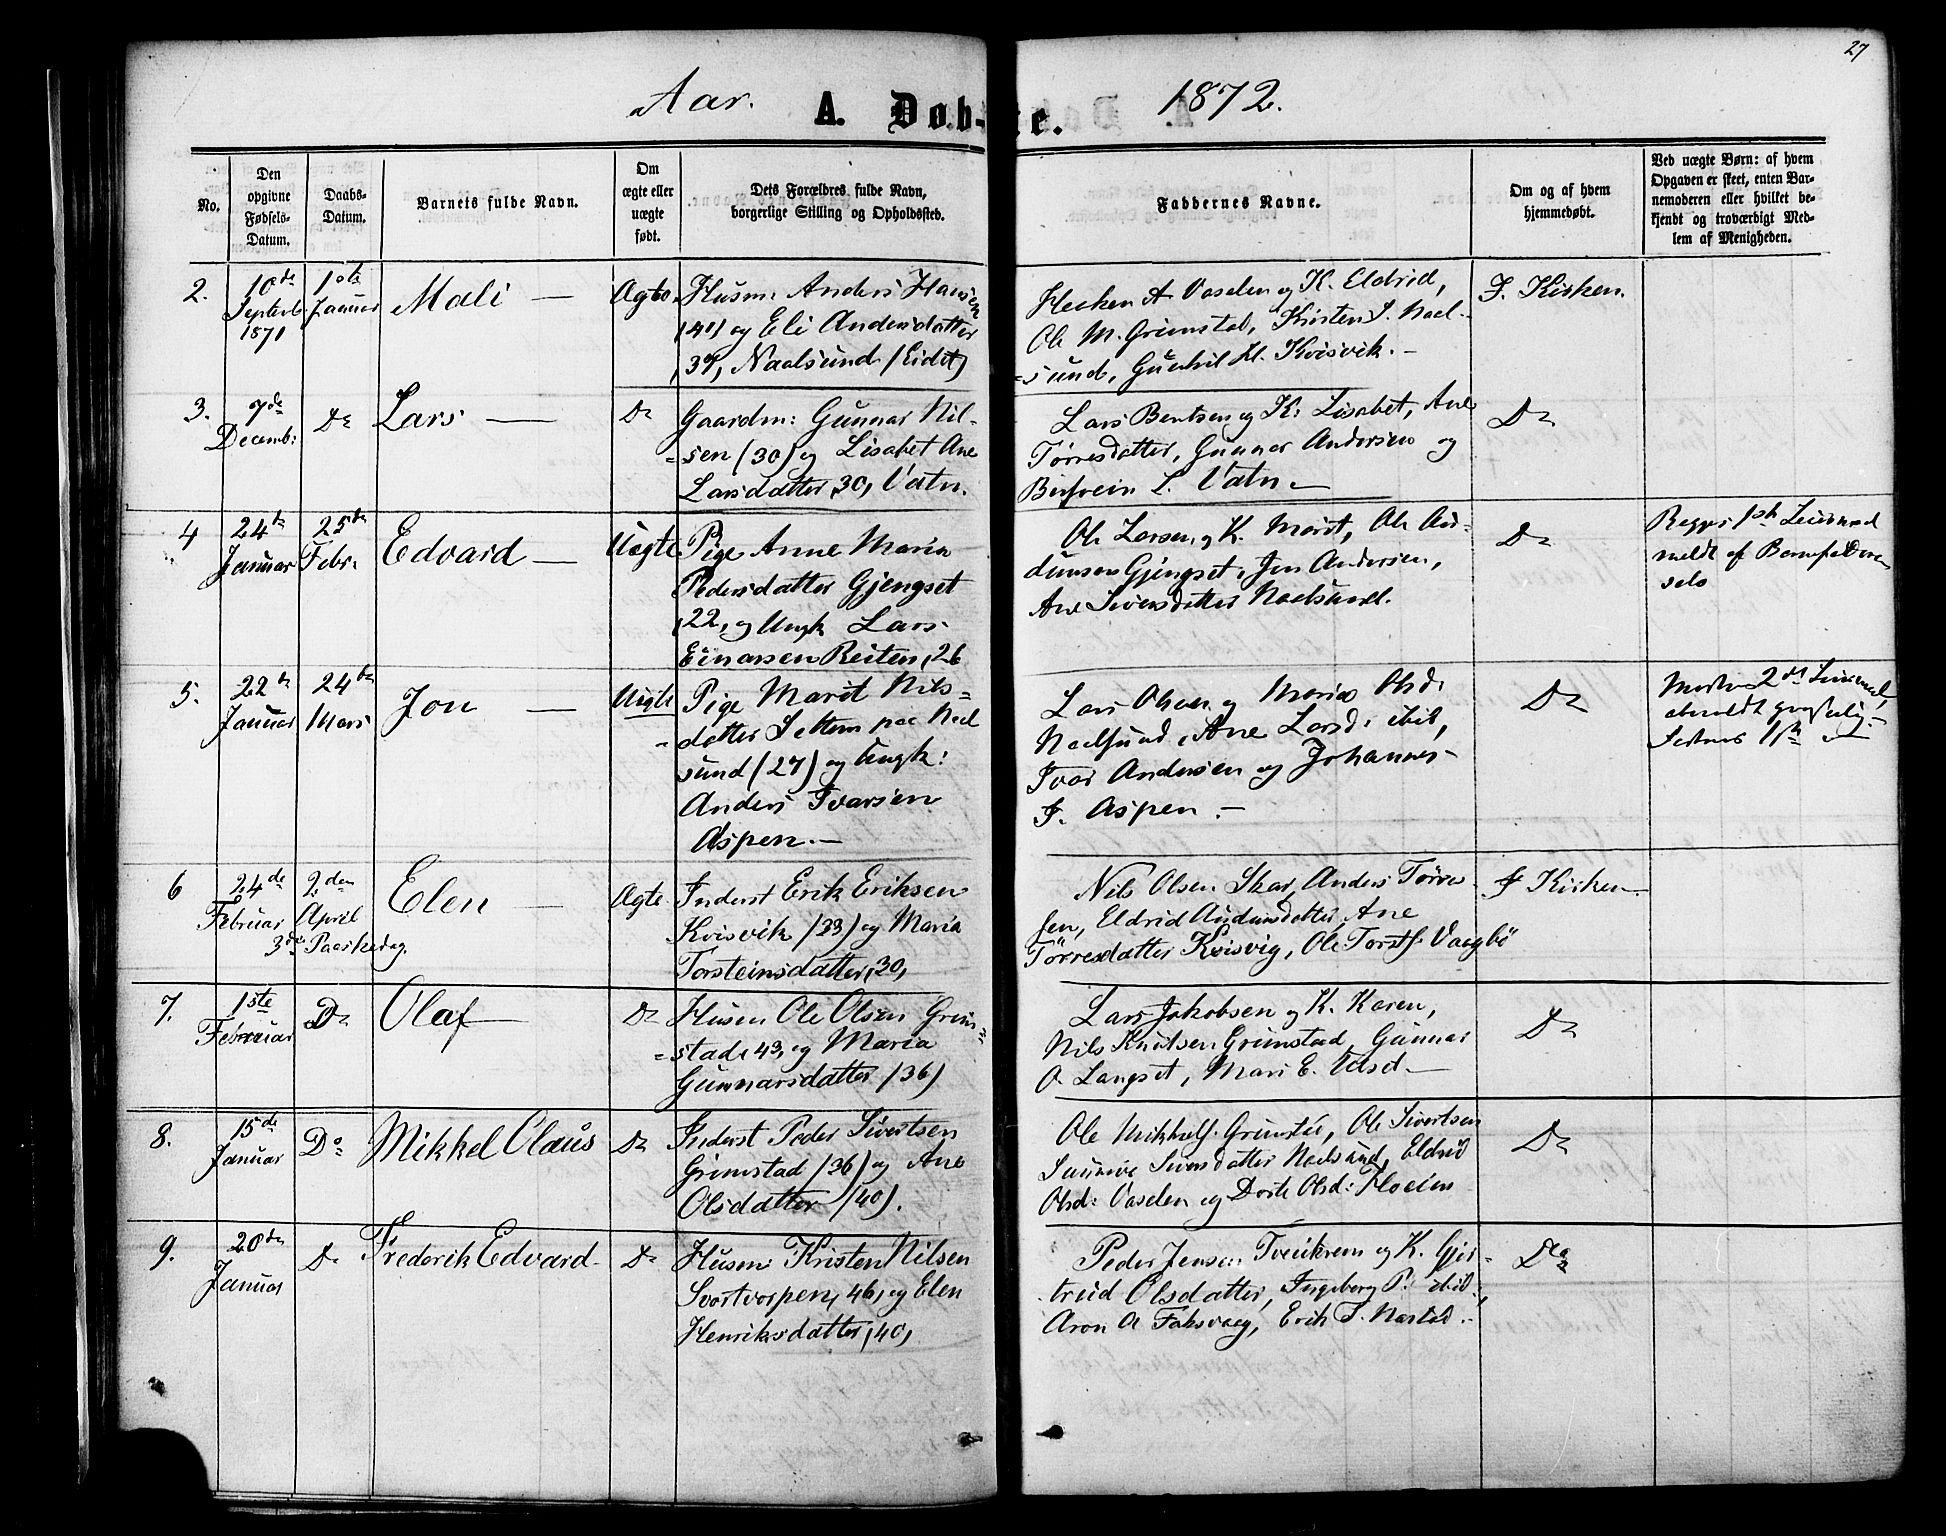 27
Aar. A. Døb-te. 1872.
No.
Den opgivne Fødsels-Datum.
Daabs-Datum.
Barnets fulde Navn.
Om ægte eller uægte født.
Dets Forældres fulde Navn, borgerlige Stilling og Opholdssted.
Faddernes Navne.
Om og af hvem hjemmedøbt.
Ved uægte Børn: af hvem Opgaven er skeet, enten Barnemoderen eller hvilket bekjendt og troværdigt Medlem af Menigheden.
2.
10de Septemb. 1871
1ste Januar
Mali —
Ægte
Husm: Anders Hansen
(40) og Eli Andersdatter
, 39, Naalsund (Eidet)
A Vaselen og K. Eldrid,
Ole M. Grimstad, Kristen S. Naal-
=sund, Gunhil H. Kvisvik. -
I. Kirken.
3.
7de Decemb:
Do
Lars —
Do
Gaardm: Gunnar Nil-
=sen (30) og Lisabet Ane
Larsdatter, 30, Vatn.
Lars Bentsen og K. Lisabet, Ane
Tørresdatter, Gunnar Andersen og
L. Vatn. —
Do
4
24de Januar
25de Febr.
Edvard —
Uægte
Pige Anne Maria
Pedersdatter Gjengset
, 22, og Ungk Lars
Einarsen Reiten, 26
Ole Larsen og K. Marit, Ole An-
dunsen Gjengset, Jon Andersen,
Ane Siversdatter Naalsund.
Do
meldt af Barnefaderen
selv
5.
22de Januar
24de Mars
Jon —
Uægte
Pige Marit Nils=
datter Settem paa Naal
sund (27) og Ungk:
Anders Ivarsen
Aspen. —
Lars Olsen og Marias Olsd.
Naalsund, Ane Larsd: ibid,
Ivar Andersen og Johannes
I. Aspen. —
Do
6
24de Februar
2den April
3die Paaskedag.
Elen —
Ægte
Inderst Erik Eriksen
Kvisvik (33) og Maria
Torsteinsdatter, 30,
Nils Olsen Skar, Anders Tørre-
sen, Eldrid Audunsdatter, Ane
Tørresdatter Kvisvig, Ole Torstf: Vaagbø
I Kirken
7.
1ste Februar
Do
Olaf
Do
Husm Ole Olsen Grim=
=stad, 43, og Maria
Gunnarsdatter (36)
Lars Jakobsen og K. Karen,
Nils Knutsen Grimstad, Gunnar
O. Langset, Mari E.
Do
8.
15de Januar
Do
Mikkel Olaus
Do
Inderst Peder Sivertsen
Grimstad (36) og Ane
Olsdatter (40).
Ole Mikkels: Grimstad, Ole Sivertsen
Siversdatter Naalsund, Eldrid
Olsd: Vaselen og Dorte Olsd: Floeim
Do
9.
20de Januar
Do
Frederik Edvard
Do
Husm: Kristen Nilsen
Svortvorpen, 46, og Elen
Henriksdatter, 40,
Peder Jensen Tveikrem og K. Gjer-
trud Olsdatter, Ingeborg P. ibid:,
Aron A Foksvaag, Erik T. Nastad.
Do